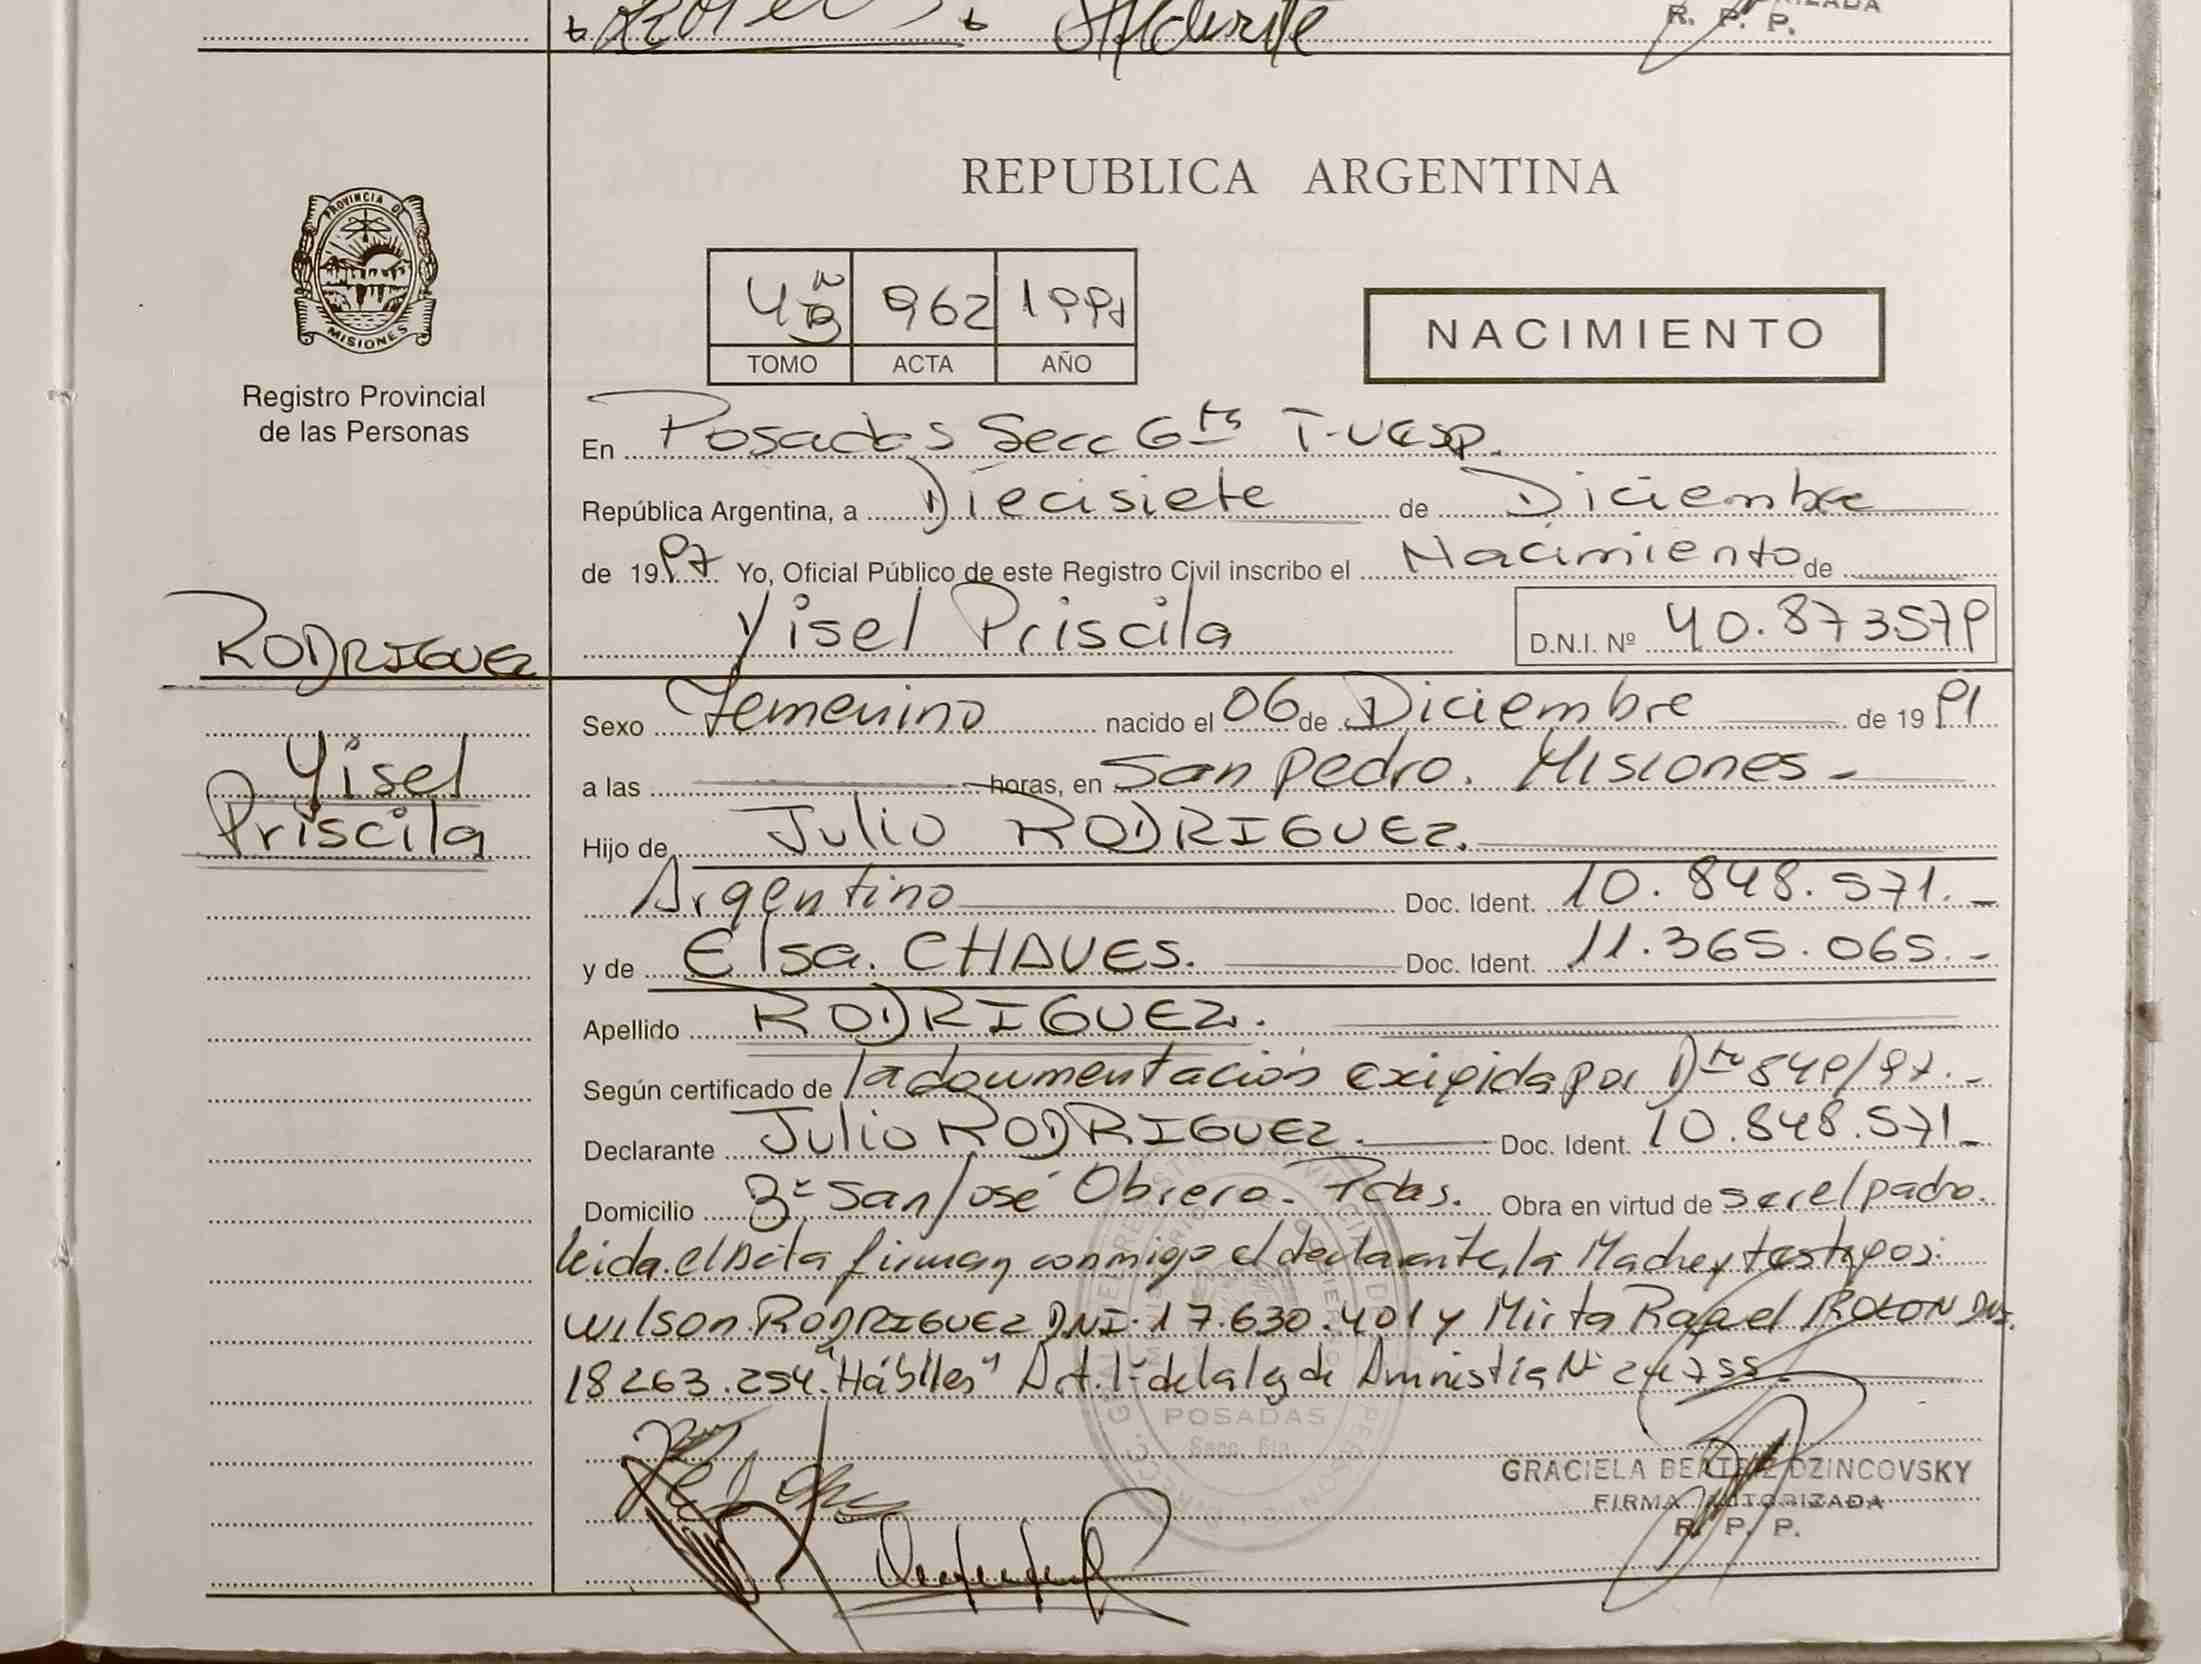 R. P. P.
PROVINCIA DE
MISIONES
Registro Provincial
de las Personas
REPUBLICA ARGENTINA
962 1991
TOMO ACTA AÑO
NACIMIENTO
En Posadas Secc 6ta T. Vesp.
República Argentina, a Diecisiete de Diciembre
de 1997 Yo, Oficial Público de este Registro Civil inscribo el Nacimiento de
Yisel Priscila D.N.I. Nº 40.873579
RODRIGUEZ
Yisel
Priscila
Sexo Femenino nacido el 06 de Diciembre de 1991
a las horas, en San Pedro. Misiones -
Hijo de Julio RODRIGUEZ.
Argentino Doc. Ident. 10.848.571.-
y de Elsa. CHAVES. Doc. Ident. 11.365.065.-
Apellido RODRIGUEZ.
Según certificado de la documentación exigida por Dto 849/97.-
Declarante Julio RODRIGUEZ. Doc. Ident. 10.848.571-
Domicilio Bº San José Obrero. Pdas. Obra en virtud de ser el padre.
leida el Acta firman conmigo el declarante, la Madre y testigos:
Wilson RODRIGUEZ DNI. 17.630.401 y Mirta Raquel ROLON DNI.
18263.254. "Hábiles" Art. 1º de la ley de Amnistia Nº 24755.
POSADAS
Secc. 6ta.
GRACIELA BEATRIZ DZINCOVSKY
FIRMA AUTORIZADA
R. P. P.